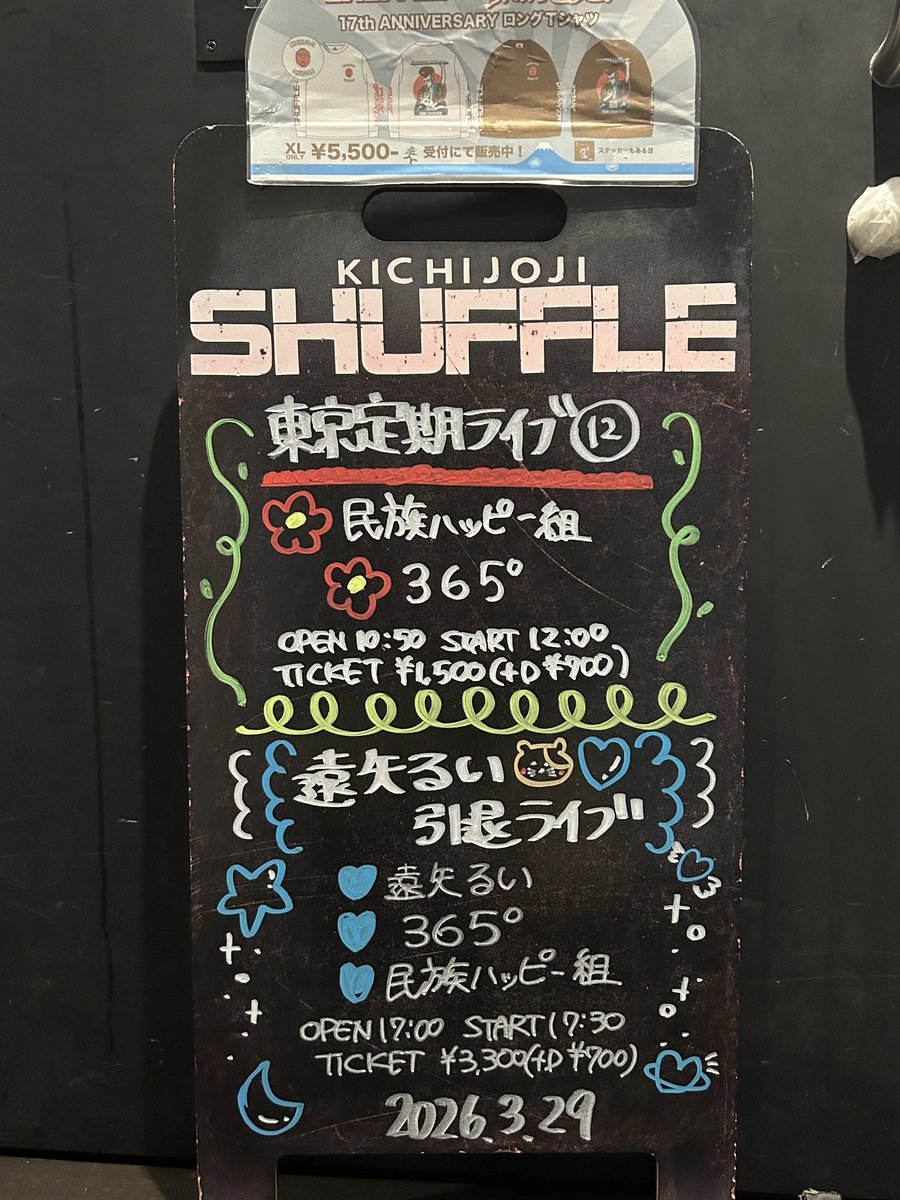 17th ANNIVERSARY ロングTシャツ
XL ONLY ¥5,500- 受付にて販売中！ ステッカーもあるヨ
KICHIJOJI
SHUFFLE
東京定期ライブ⑫
民族ハッピー組
365°
OPEN 10:50 START 12:00
TICKET ¥1,500(+D ¥700)
遠矢るい
引退ライブ
遠矢るい
365°
民族ハッピー組
OPEN 17:00 START 17:30
TICKET ¥3,300(+D ¥700)
2026.3.29